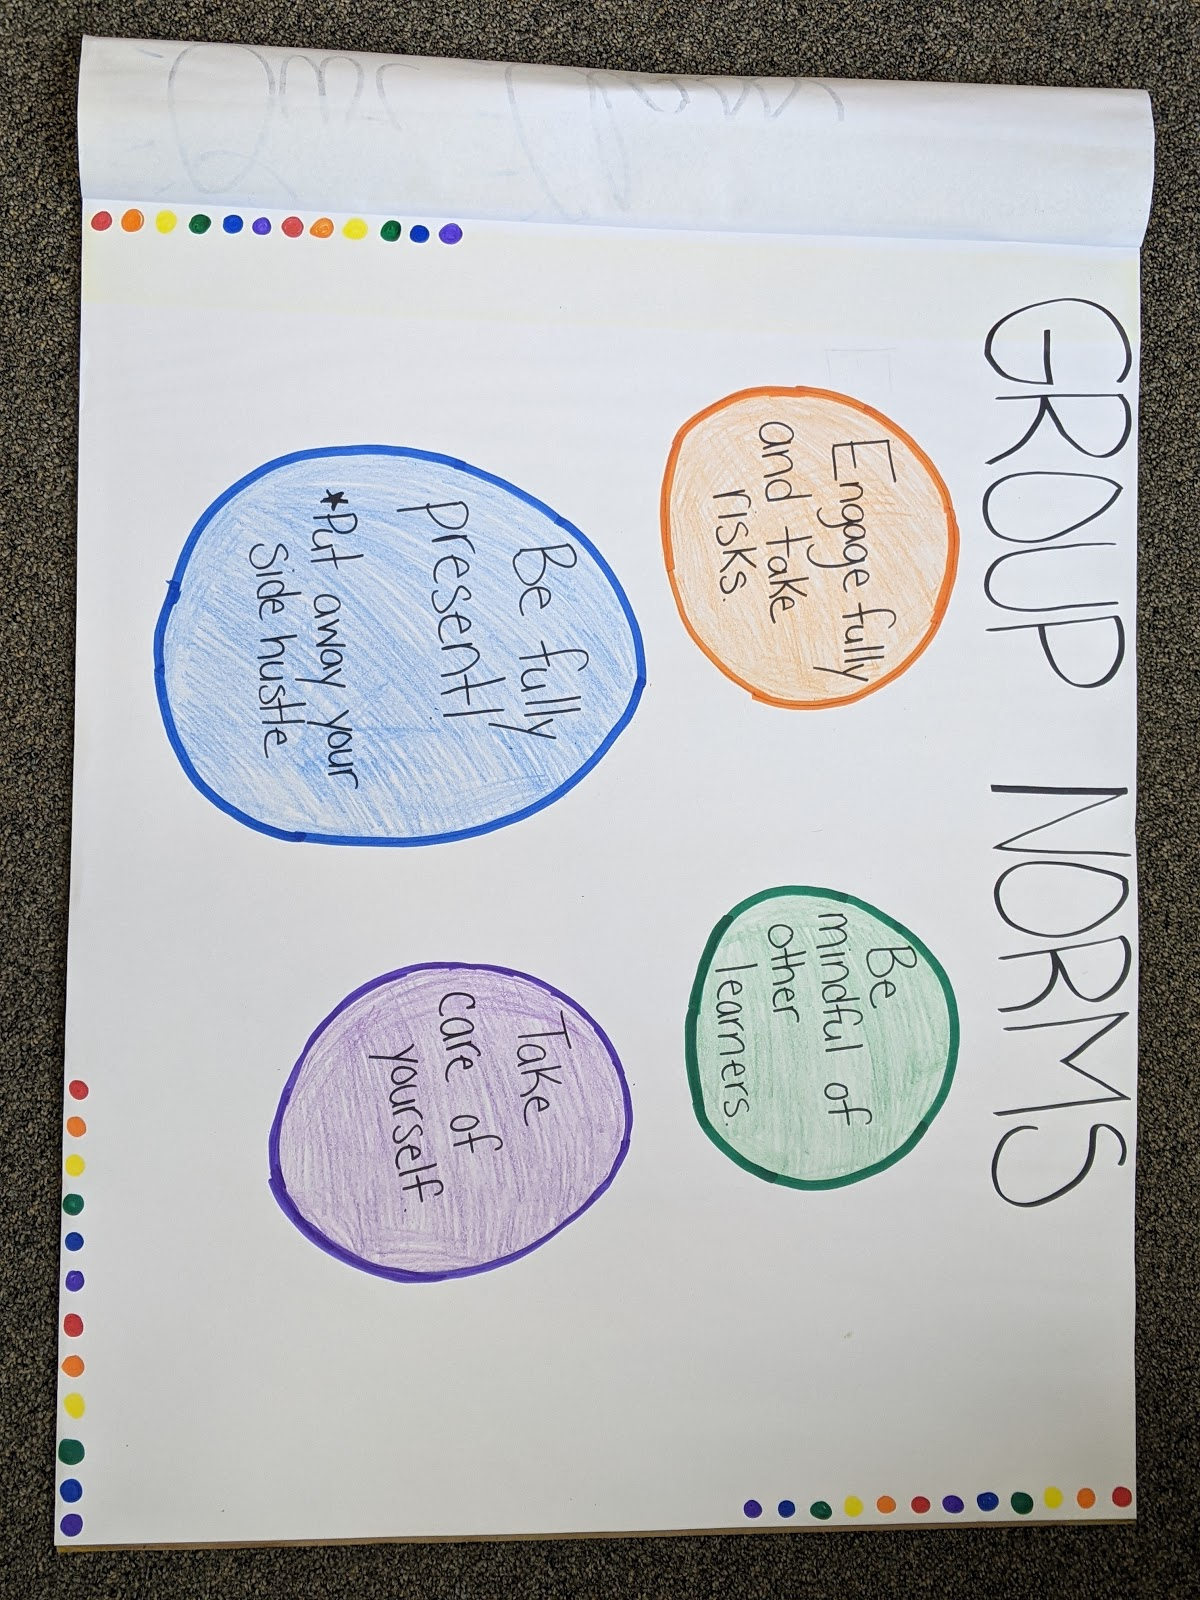 GROUP NORMS
Engage fully
and take
risks.
Be
mindful of
other
learners.
Be fully
present!
★Put away your
side hustle
Take
care of
yourself.